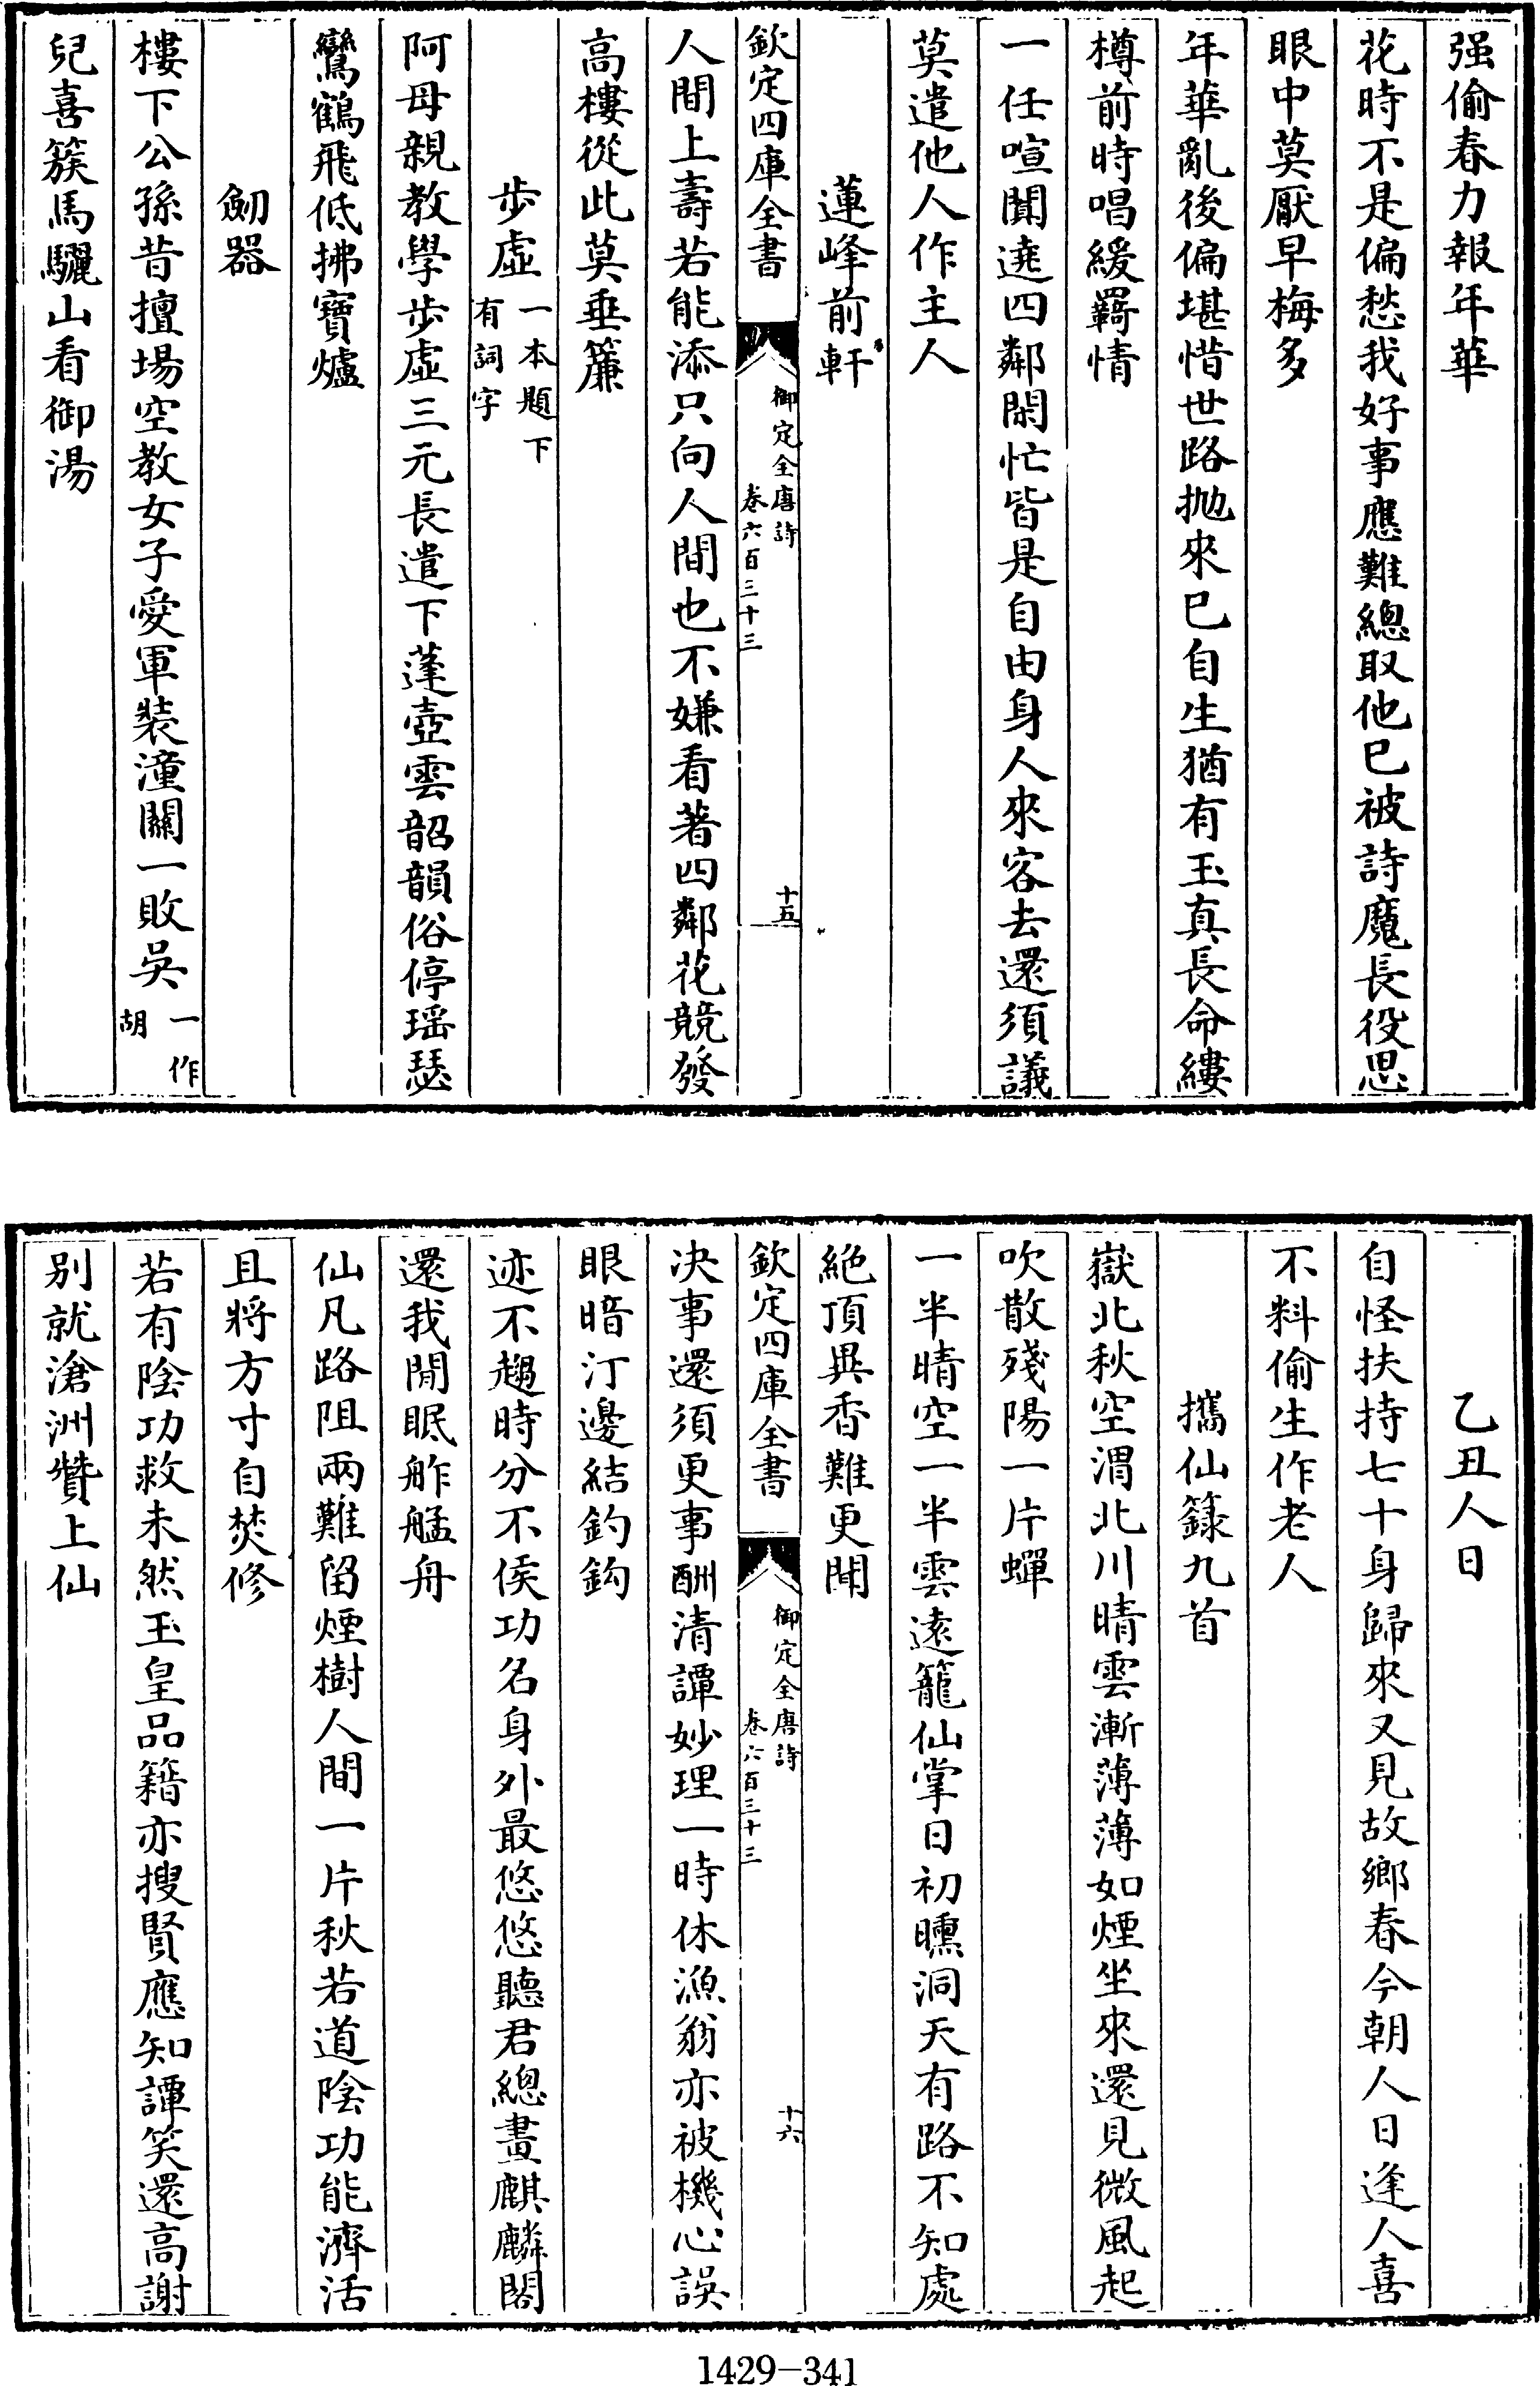 强偷春力報年華
花時不是偏愁我好事應難總取他已被詩魔長役思
眼中莫厭早梅多
年華亂後偏堪惜世路抛來已自生猶有玉真長命縷
樽前時唱緩羇情
一任喧闐遶四鄰閑忙皆是自由身人來客去還須議
莫遣他人作主人
蓮峰前軒
欽定四庫全書
御定全唐詩
卷六百三十三
十五
人間上壽若能添只向人間也不嫌看著四鄰花競發
高樓從此莫垂簾
步虛一本題下有詞字
阿母親教學步虛三元長遣下蓬壺雲韶韻俗停瑶瑟
鸞鶴飛低拂寶爐
劒器
樓下公孫昔擅場空教女子愛軍裝潼關一敗吳一作胡
兒喜簇馬驪山看御湯
乙丑人日
自怪扶持七十身歸來又見故鄉春今朝人日逢人喜
不料偷生作老人
攜仙籙九首
嶽北秋空渭北川晴雲漸薄薄如煙坐來還見微風起
吹散殘陽一片蟬
一半晴空一半雲遠籠仙掌日初曛洞天有路不知處
絶頂異香難更聞
欽定四庫全書
御定全唐詩
卷六百三十三
十六
决事還須更事酬清譚妙理一時休漁翁亦被機心誤
眼暗汀邊結釣鈎
迹不趨時分不侯功名身外最悠悠聽君總畫麒麟閣
還我閒眠舴艋舟
仙凡路阻兩難留煙樹人間一片秋若道陰功能濟活
且將方寸自焚修
若有陰功救未然玉皇品籍亦搜賢應知譚笑還高謝
别就滄洲贊上仙
1429-341